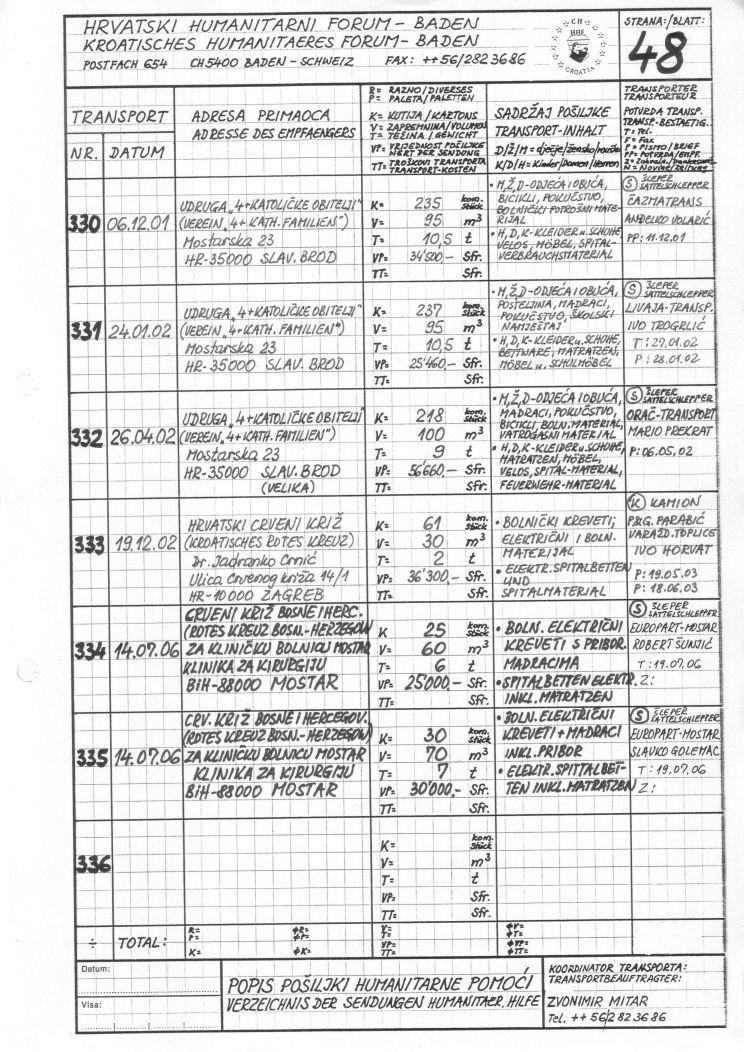 HRVATSKI HUMANITARNI FORUM – BADEN
KROATISCHES HUMANITAERES FORUM – BADEN
POSTFACH 654 CH5400 BADEN – SCHWEIZ FAX: ++56/2823686
CH
HHF
CROATIA
STRANA:/BLATT:
48
TRANSPORT
NR. DATUM
ADRESA PRIMAOCA
ADRESSE DES EMPFAENGERS
R= RAZNO/DIVERSES
P= PALETA/PALETTEN
K= KUTIJA/KARTONS
V= ZAPREMNINA/VOLUMEN
T= TEŽINA/GEWICHT
VP= VRIJEDNOST POŠILJKE
WERT DER SENDUNG
TT= TROŠKOVI TRANSPORTA
TRANSPORT-KOSTEN
SADRŽAJ POŠILJKE
TRANSPORT-INHALT
D/Ž/M = dječje/žensko/muško
K/D/H = Kinder/Damen/Herren
TRANSPORTER
TRANSPORTEUR
POTVRDA TRANSP.
TRANSP.-BESTAETIG.
T = Tel.
F = Fax
P = PISMO/BRIEF
PP = POTVRDA/EMPF.
Z = Zahvala/Dankesurk.
N = Novine/Zeitung
330 06.12.01
UDRUGA „4+KATOLIČKE OBITELJI"
(VEREIN „4+KATH. FAMILIEN")
Mostarska 23
HR-35000 SLAV. BROD
K= 235 kom. Stück
V= 95 m³
T= 10,5 t
VP= 34'500– Sfr.
TT= Sfr.
• M,Ž,D-ODJEĆA I OBUĆA,
BICIKLI, POKUĆSTVO,
BOLNIČKI POTROŠNI MATE-
RIJAL
• H,D,K-KLEIDER u. SCHUHE
VELOS, MÖBEL, SPITAL-
VERBRAUCHSMATERIAL
(S) ŠLEPER
SATTELSCHLEPPER
ČAZMATRANS
ANĐELKO VOLARIĆ
PP: 11.12.01
331 24.01.02
UDRUGA „4+KATOLIČKE OBITELJI"
(VEREIN „4+KATH. FAMILIEN")
Mostarska 23
HR-35000 SLAV. BROD
K= 237 kom. Stück
V= 95 m³
T= 10,5 t
VP= 25'460– Sfr.
TT= Sfr.
• M,Ž,D-ODJEĆA I OBUĆA,
POSTELJINA, MADRACI,
POKUĆSTVO, ŠKOLSKI
NAMJEŠTAJ
• H,D,K-KLEIDER u. SCHUHE,
BETTWARE, MATRATZEN,
MÖBEL u. SCHULMÖBEL
(S) ŠLEPER
SATTELSCHLEPPER
LIVAJA-TRANSP.
IVO TROGRLIĆ
T: 27.01.02
P: 28.01.02
332 26.04.02
UDRUGA „4+KATOLIČKE OBITELJI"
(VEREIN „4+KATH. FAMILIEN")
Mostarska 23
HR-35000 SLAV. BROD
(VELIKA)
K= 218 kom. Stück
V= 100 m³
T= 9 t
VP= 56660,– Sfr.
TT= Sfr.
• M,Ž,D-ODJEĆA I OBUĆA,
MADRACI, POKUĆSTVO,
BICIKLI, BOLN. MATERIJAL,
VATROGASNI MATERIAL
• H,D,K-KLEIDER u. SCHUHE,
MATRATZEN, MÖBEL,
VELOS, SPITAL-MATERIAL,
FEUERWEHR-MATERIAL
(S) ŠLEPER
SATTELSCHLEPPER
ORAČ-TRANSPORT
MARIO PREKRAT
P: 06.05.02
333 19.12.02
HRVATSKI CRVENI KRIŽ
(KROATISCHES ROTES KREUZ)
Dr. Jadranko Crnić
Ulica Crvenog križa 14/1
HR-10000 ZAGREB
K= 61 kom. Stück
V= 30 m³
T= 2 t
VP= 36'300,– Sfr.
TT= Sfr.
• BOLNIČKI KREVETI;
ELEKTRIČNI I BOLN.
MATERIJAL
• ELEKTR. SPITALBETTEN
UND
SPITALMATERIAL
(K) KAMION
P.&G. PARABIĆ
VARAŽD. TOPLICE
IVO HORVAT
P: 19.05.03
P: 18.06.03
334 14.07.06
CRVENI KRIŽ BOSNE I HERC.
(ROTES KREUZ BOSN.-HERZEGOW
ZA KLINIČKU BOLNICU MOSTAR
KLINIKA ZA KIRURGIJU
BiH-88000 MOSTAR
K 25 kom. Stück
V= 60 m³
T= 6 t
VP= 25000,– Sfr.
TT= Sfr.
• BOLN. ELEKTRIČNI
KREVETI S PRIBOR.
MADRACIMA
• SPITALBETTEN ELEKTR.
INKL. MATRATZEN
(S) ŠLEPER
SATTELSCHLEPPER
EUROPART-MOSTAR
ROBERT ŠUNJIĆ
T: 19.07.06
Z:
335 14.07.06
CRV. KRIŽ BOSNE I HERCEGOV.
(ROTES KREUZ BOSN.-HERZEGOW
ZA KLINIČKU BOLNICU MOSTAR
KLINIKA ZA KIRURGIJU
BiH-88000 MOSTAR
K= 30 kom. Stück
V= 70 m³
T= 7 t
VP= 30'000,– Sfr.
TT= Sfr.
• BOLN. ELEKTRIČNI
KREVETI + MADRACI
INKL. PRIBOR
• ELEKTR. SPITTALBET-
TEN INKL. MATRATZEN
(S) ŠLEPER
SATTELSCHLEPPER
EUROPART-MOSTAR
SLAVKO GOLEMAC
T: 19.07.06
Z:
336
K= kom. Stück
V= m³
T= t
VP= Sfr.
TT= Sfr.
÷ TOTAL:
R= ϕR=
P= ϕP=
K= ϕK=
V=
T=
VP=
TT=
ϕV=
ϕT=
ϕVP=
ϕTT=
Datum:
Visa:
POPIS POŠILJKI HUMANITARNE POMOĆI
VERZEICHNIS DER SENDUNGEN HUMANITAER. HILFE
KOORDINATOR TRANSPORTA:
TRANSPORTBEAUFTRAGTER:
ZVONIMIR MITAR
Tel. ++56/2823686